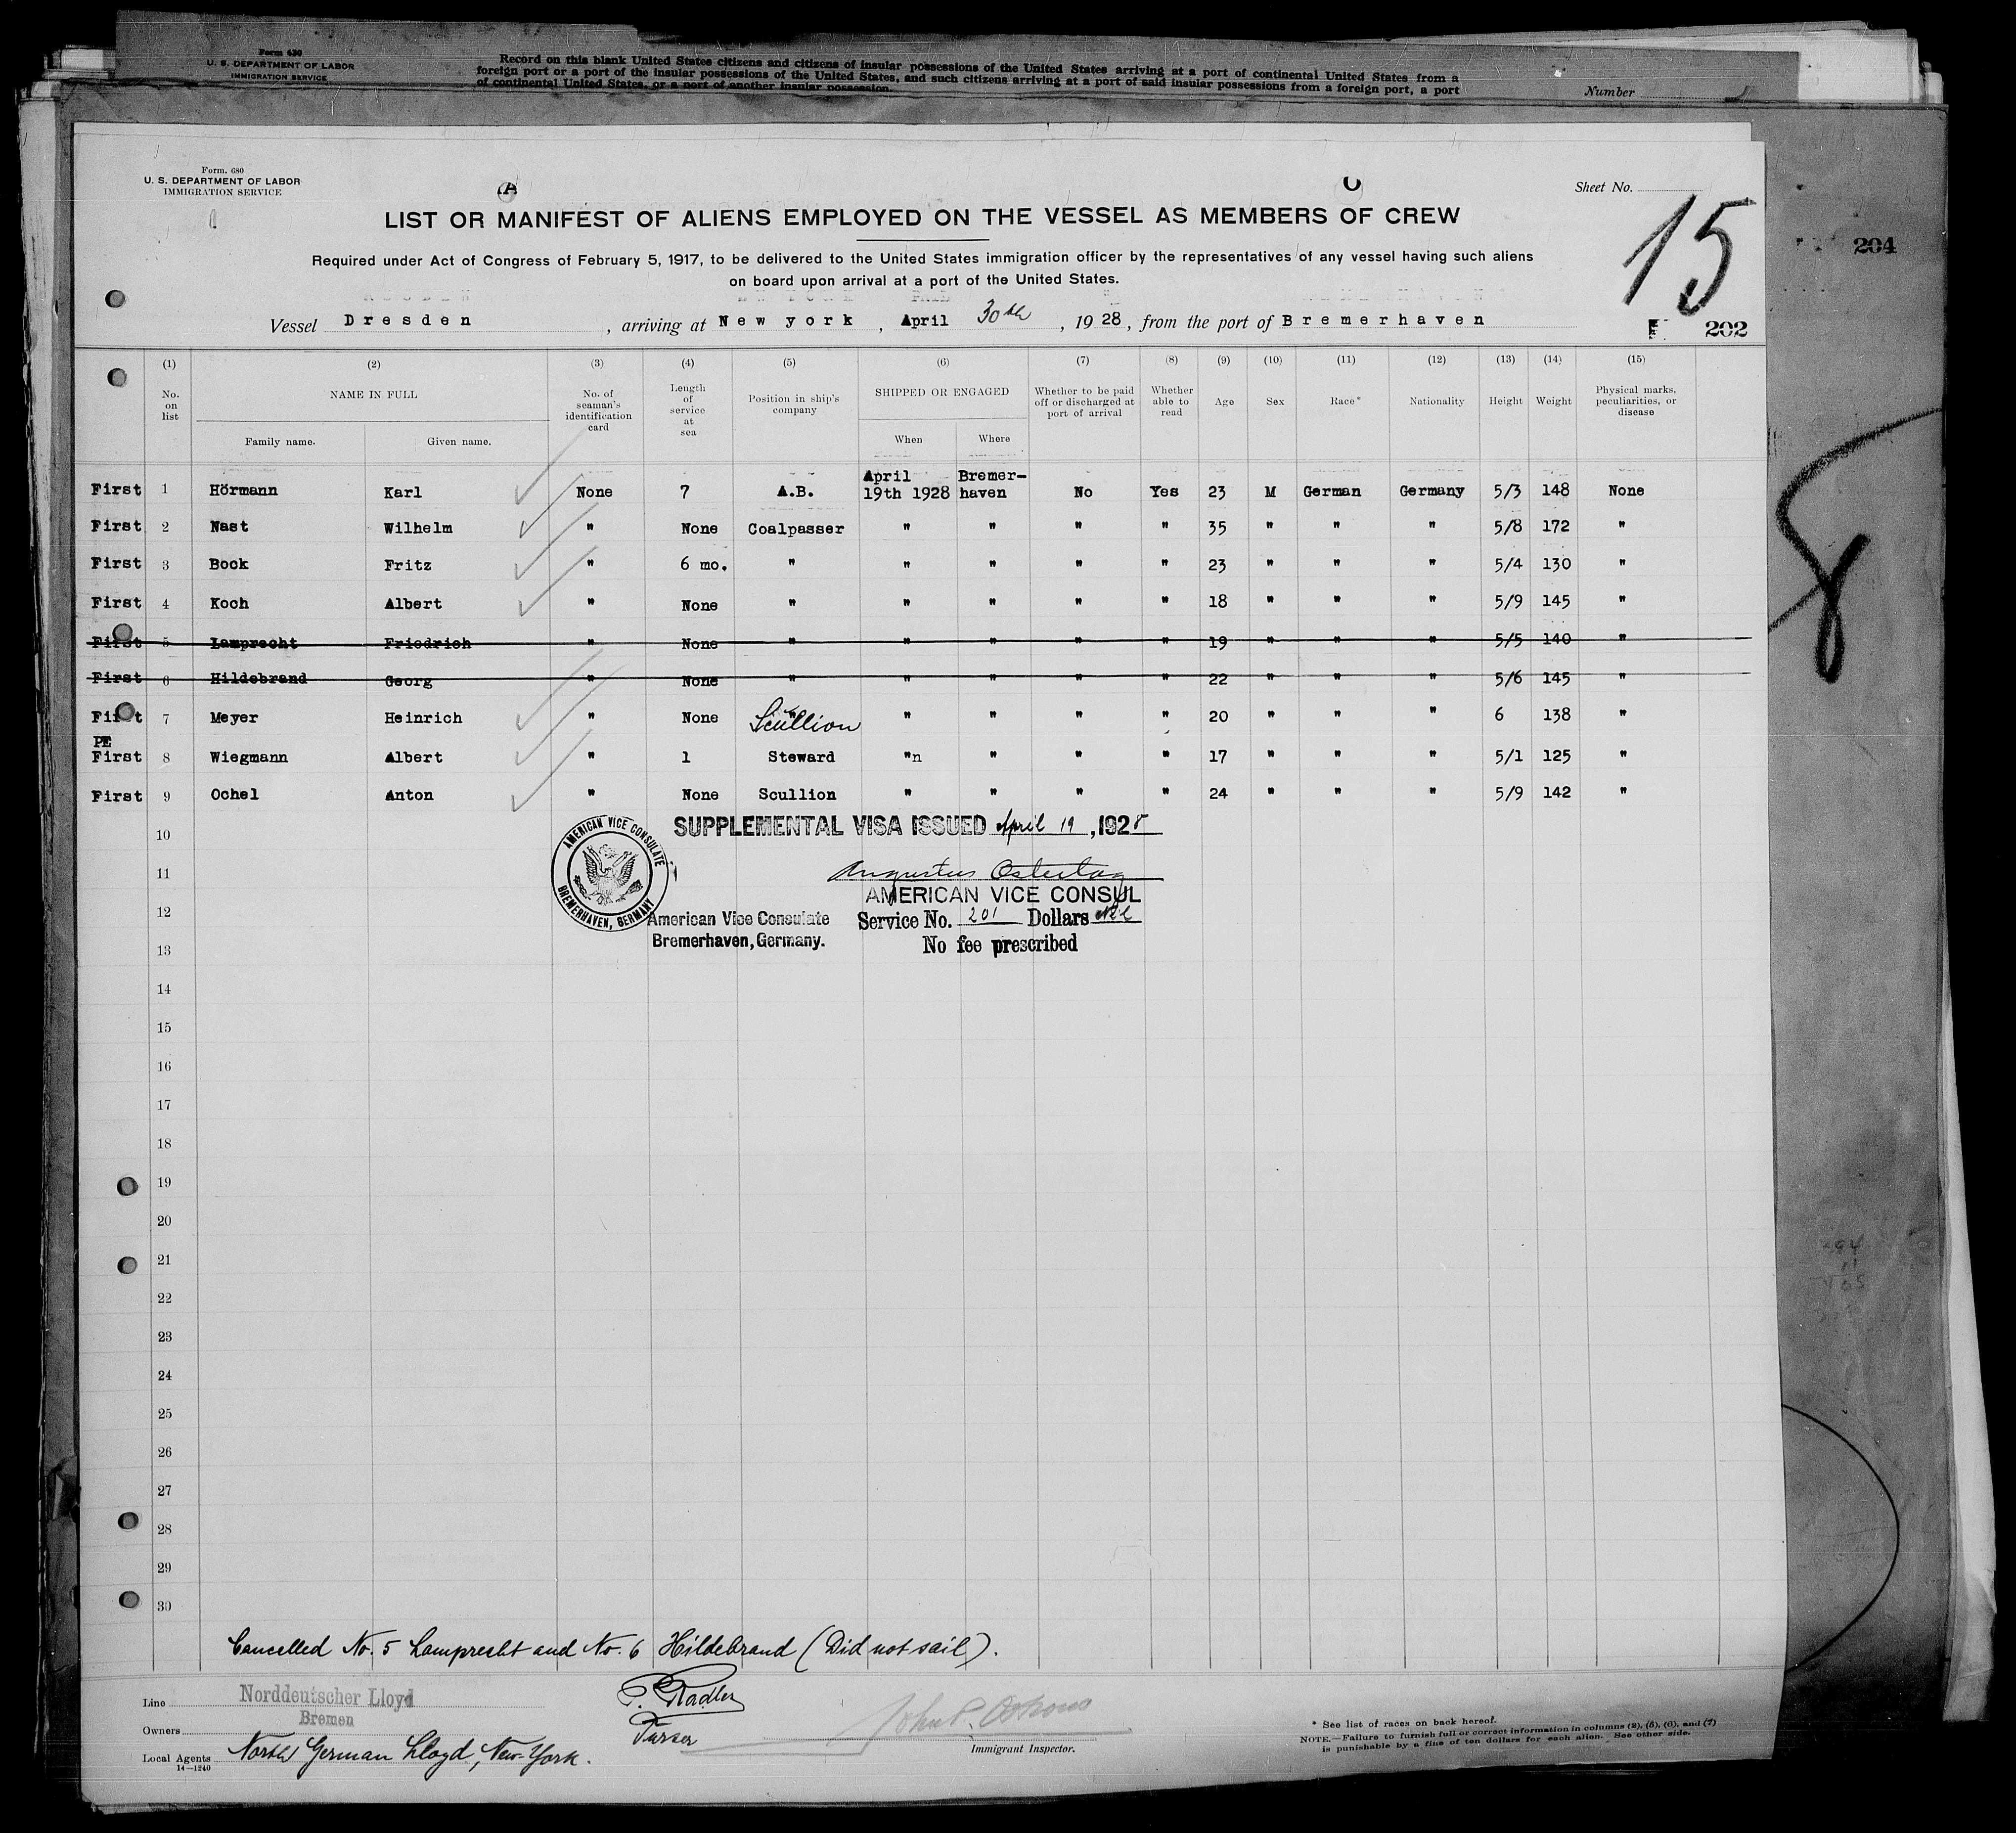 Form 630
U. S. DEPARTMENT OF LABOR
IMMIGRATION SERVICE
Record on this blank United States citizens and citizens of insular possessions of the United States arriving at a port of continental United States from a
foreign port or a port of the insular possessions of the United States, and such citizens arriving at a port of said insular possessions from a foreign port, a port
of continental United States, or a port of another insular possession.
Number
Form. 680
U. S. DEPARTMENT OF LABOR
IMMIGRATION SERVICE
Sheet No.
15
204
LIST OR MANIFEST OF ALIENS EMPLOYED ON THE VESSEL AS MEMBERS OF CREW
Required under Act of Congress of February 5, 1917, to be delivered to the United States immigration officer by the representatives of any vessel having such aliens
on board upon arrival at a port of the United States.
Vessel Dresden, arriving at New york, April 30th, 1928, from the port of Bremerhaven
202
(1) (2) (3) (4) (5) (6) (7) (8) (9) (10) (11) (12) (13) (14) (15)
No. on list
NAME IN FULL
Family name. Given name.
No. of seaman's identification card
Length of service at sea
Position in ship's company
SHIPPED OR ENGAGED
When Where
Whether to be paid off or discharged at port of arrival
Whether able to read
Age
Sex
Race*
Nationality
Height
Weight
Physical marks, peculiarities, or disease
First 1 Hörmann Karl None 7 A.B. April 19th 1928 Bremer-haven No Yes 23 M German Germany 5/3 148 None
First 2 Nast Wilhelm " None Coalpasser " " " " 35 " " " 5/8 172 "
First 3 Bock Fritz " 6 mo. " " " " " 23 " " " 5/4 130 "
First 4 Koch Albert " None " " " " " 18 " " " 5/9 145 "
First 5 Lamprecht Friedrich " None " " " " " 19 " " " 5/5 140 "
First 6 Hildebrand Georg " None " " " " " 22 " " " 5/6 145 "
First 7 Meyer Heinrich " None " Scullion " " " " 20 " " " 6 138 "
PE
First 8 Wiegmann Albert " 1 Steward "n " " " 17 " " " 5/1 125 "
First 9 Ochel Anton " None Scullion " " " " 24 " " " 5/9 142 "
10
SUPPLEMENTAL VISA ISSUED April 19, 1928
AMERICAN VICE CONSULATE
BREMERHAVEN, GERMANY
11
Augustus Ostertag
AMERICAN VICE CONSUL
12
American Vice Consulate
Bremerhaven, Germany.
Service No. 201 Dollars
No fee prescribed
13
14
15
16
17
18
19
20
21
22
23
24
25
26
27
28
29
30
8
Cancelled No. 5 Lamprecht and No. 6 Hildebrand (Did not sail).
Line Norddeutscher Lloyd
Bremen
Owners
Local Agents North German Lloyd, New-York.
14—1240
P. Radler
Purser
Immigrant Inspector.
* See list of races on back hereof.
NOTE.—Failure to furnish full or correct information in columns (2), (5), (6), and (7)
is punishable by a fine of ten dollars for each alien. See other side.